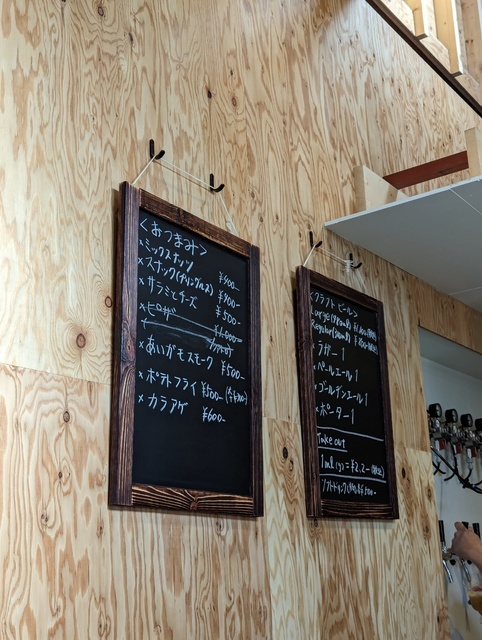 <おつまみ>
×ミックスナッツ ¥400-
×スナック(プリングルス) ¥300-
×サラミとチーズ ¥500-
×ピザ ¥1,000-
×あいがもスモーク ¥500-
×ポテトフライ ¥500-
×カラアゲ ¥600-
<クラフトビール>
Large
Regular
×ラガー 1
×ペールエール 1
×ゴールデンエール 1
×ポーター 1
Take out
1ml(g)=¥2.2-(税込)
ソフトドリンク